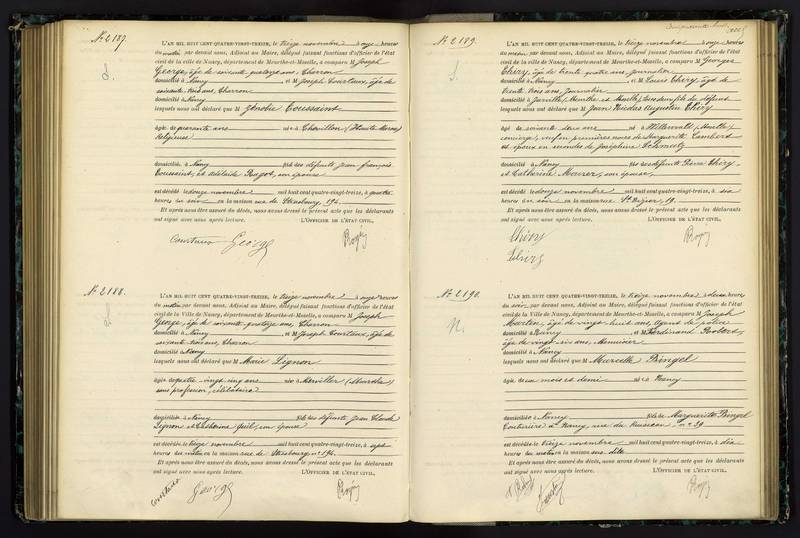 N. 2187.
L'AN MIL HUIT CENT QUATRE-VINGT-TREIZE, le treize novembre à onze heures
du matin par devant nous, Adjoint au Maire, délégué faisant fonctions d'officier de l'état
civil de la ville de Nancy, département de Meurthe-et-Moselle, a comparu M Joseph
George, âgé de soixante quatorze ans, Charron
domicilié à Nancy et M Joseph Courtaux, âgé de
soixante-trois ans, Charron
domicilié à Nancy
lesquels nous ont déclaré que M Zénobie Toussaint
âgée de quarante ans née à Chevillon (Haute Marne)
Religieuse
domiciliée à Nancy fille des défunts Jean François
Toussaint, et Adélaïde son épouse
est décédée le douze novembre mil huit cent quatre-vingt-treize, à quatre
heures du soir en la maison rue de Strasbourg, 194.
Et après nous être assuré du décès, nous avons dressé le présent acte que les déclarants
ont signé avec nous après lecture. L'OFFICIER DE L'ÉTAT CIVIL,
Courtaux George
N. 2188.
L'AN MIL HUIT CENT QUATRE-VINGT-TREIZE, le treize novembre à onze heures
du matin par devant nous, Adjoint au Maire, délégué faisant fonctions d'officier de l'état
civil de la Ville de Nancy, département de Meurthe-et-Moselle, a comparu M Joseph
George, âgé de soixante quatorze ans, Charron
domicilié à Nancy et M Joseph Courtaux, âgé de
soixante trois ans, Charron
domicilié à Nancy
lesquels nous ont déclaré que M Marie Lignon
âgée de quatre-vingt-cinq ans née à Merviller (Meurthe)
sans profession, célibataire
domiciliée à Nancy fille des défunts Jean Claude
Lignon et Catherine son épouse
est décédée le treize novembre mil huit cent quatre-vingt-treize, à sept
heures du matin en la maison rue de Strasbourg n° 194.
Et après nous être assuré du décès, nous avons dressé le présent acte que les déclarants
ont signé avec nous après lecture. L'OFFICIER DE L'ÉTAT CIVIL,
Courtaux George
N. 2189.
L'AN MIL HUIT CENT QUATRE-VINGT-TREIZE, le treize novembre à onze heures
du matin par devant nous, Adjoint au Maire, délégué faisant fonctions d'officier de l'état
civil de la ville de Nancy, département de Meurthe-et-Moselle, a comparu M Georges
Thiry, âgé de trente quatre ans, journalier
domicilié à Nancy et M Louis Thiry, âgé de
trente trois ans, Journalier
domicilié à Jarville, (Meurthe et Moselle), tous deux fils du défunt
lesquels nous ont déclaré que M Jean Nicolas Augustin Thiry
âgé de soixante deux ans né à (Moselle)
concierge, veuf en premières noces de Marguerite Lambert
et époux en secondes de Joséphine Schmutz
domicilié à Nancy fils des défunts Pierre Thiry
et Catherine Maurer, son épouse,
est décédé le douze novembre mil huit cent quatre-vingt-treize, à six
heures du soir en la maison rue St Dizier, 19.
Et après nous être assuré du décès, nous avons dressé le présent acte que les déclarants
ont signé avec nous après lecture. L'OFFICIER DE L'ÉTAT CIVIL,
Thiry
Thiry
N. 2190.
L'AN MIL HUIT CENT QUATRE-VINGT-TREIZE, le treize novembre à deux heures
du soir par devant nous, Adjoint au Maire, délégué faisant fonctions d'officier de l'état
civil de la Ville de Nancy, département de Meurthe-et-Moselle, a comparu M Joseph
âgé de vingt huit ans, agent de police
domicilié à Nancy et M Ferdinand
âgé de vingt-six ans, Menuisier
domicilié à Nancy
lesquels nous ont déclaré que M Marcelle Pringel
âgée de un mois et demi née à Nancy
domiciliée à Nancy fille de Marguerite Pringel
Couturière à Nancy, rue du Ruisseau, n° 29
est décédée le treize novembre mil huit cent quatre-vingt-treize, à dix
heures du matin en la maison sus dite
Et après nous être assuré du décès, nous avons dressé le présent acte que les déclarants
ont signé avec nous après lecture. L'OFFICIER DE L'ÉTAT CIVIL,